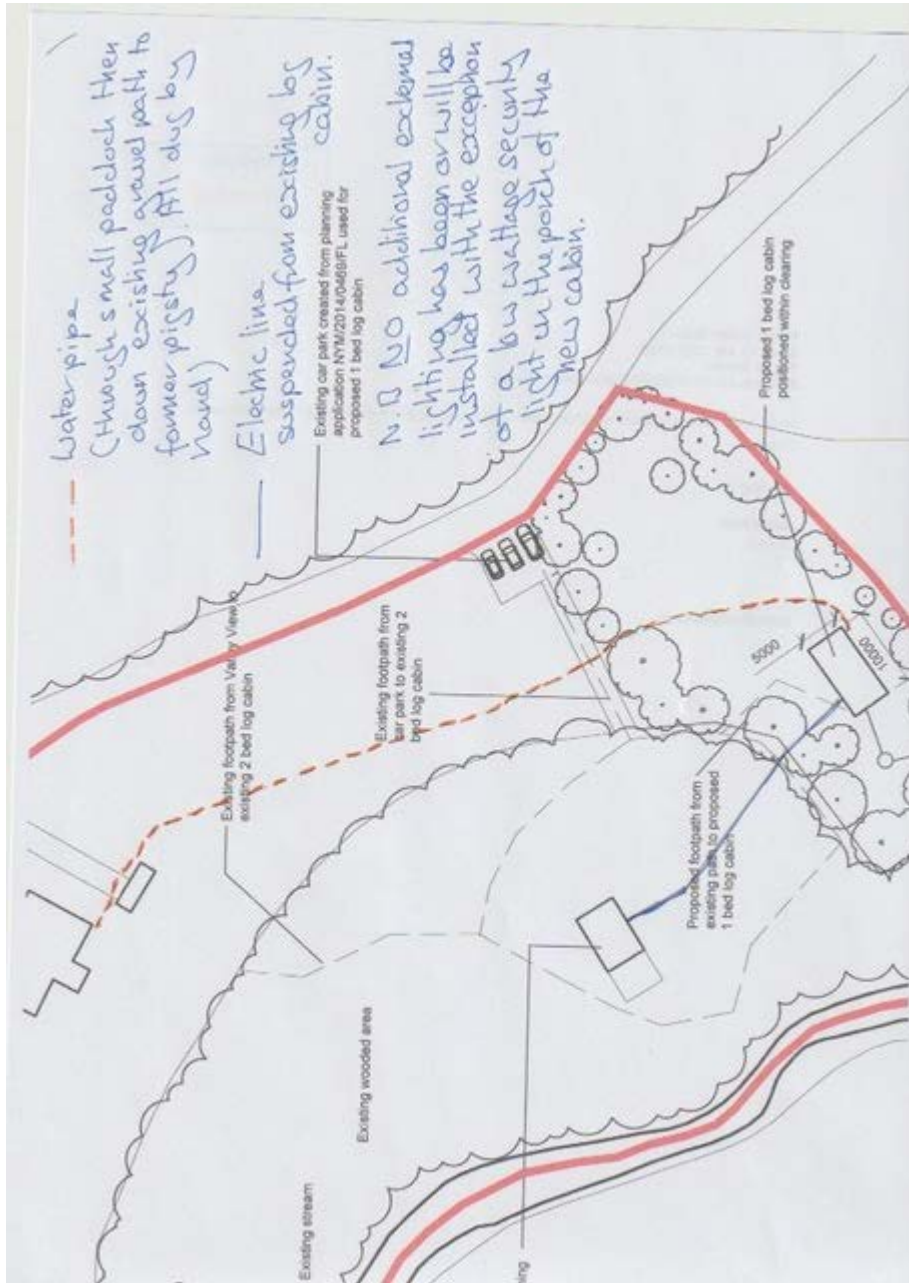 Water pipe
(through small paddock then
down existing gravel path to
former pigsty). All dug by
hand)
Electric line
suspended from existing log
cabin.
Existing car park created from planning
application NYM/2014/0469/FL used for
proposed 1 bed log cabin
N.B NO additional external
lighting has been or will be
installed with the exception
of a low wattage security
light in the porch of the
new cabin.
Proposed 1 bed log cabin
positioned within clearing
Existing footpath from Valley View to
existing 2 bed log cabin
Existing footpath from
car park to existing 2
bed log cabin
5000
10000
Proposed footpath from
existing path to proposed
1 bed log cabin
Existing wooded area
Existing stream
ing